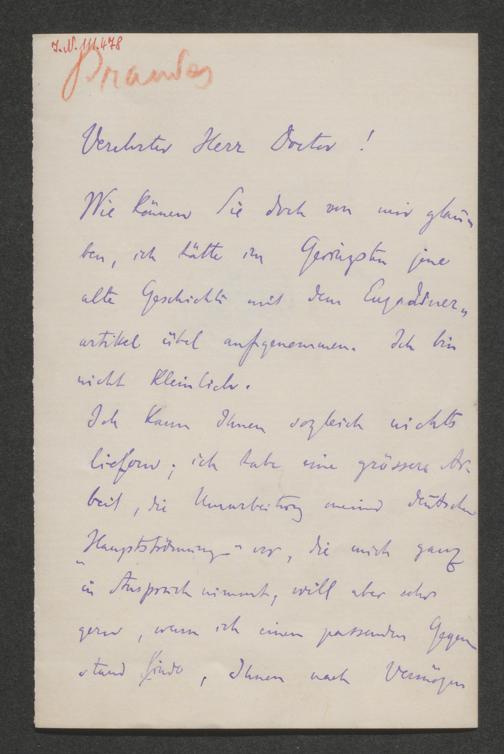 J. N. 111.478
Brandes
Verehrter Herr Doctor!
Wie können Sie doch von mir glau-
ben, ich hätte im Geringsten jene
alte Geschichte mit dem
artikel übel aufgenommen. Ich bin
nicht kleinlich.
Ich kann Ihnen sogleich nichts
liefern; ich habe eine grössere Ar-
beit, die Umarbeitung meiner deutschen
„Hauptströmung" vor, die mich ganz
in Anspruch nimmt, will aber sehr
gern, wenn ich einen passenden Gegen
stand finde, Ihnen nach Vermögen